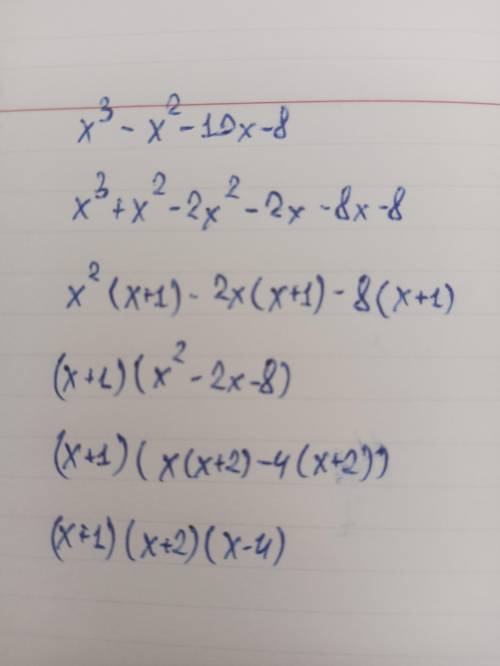 x³ - x² - 10x - 8
x³ + x² - 2x² - 2x - 8x - 8
x² (x+1) - 2x(x+1) - 8(x+1)
(x+1)(x² - 2x - 8)
(x+1)(x(x+2) - 4(x+2))
(x+1)(x+2)(x-4)